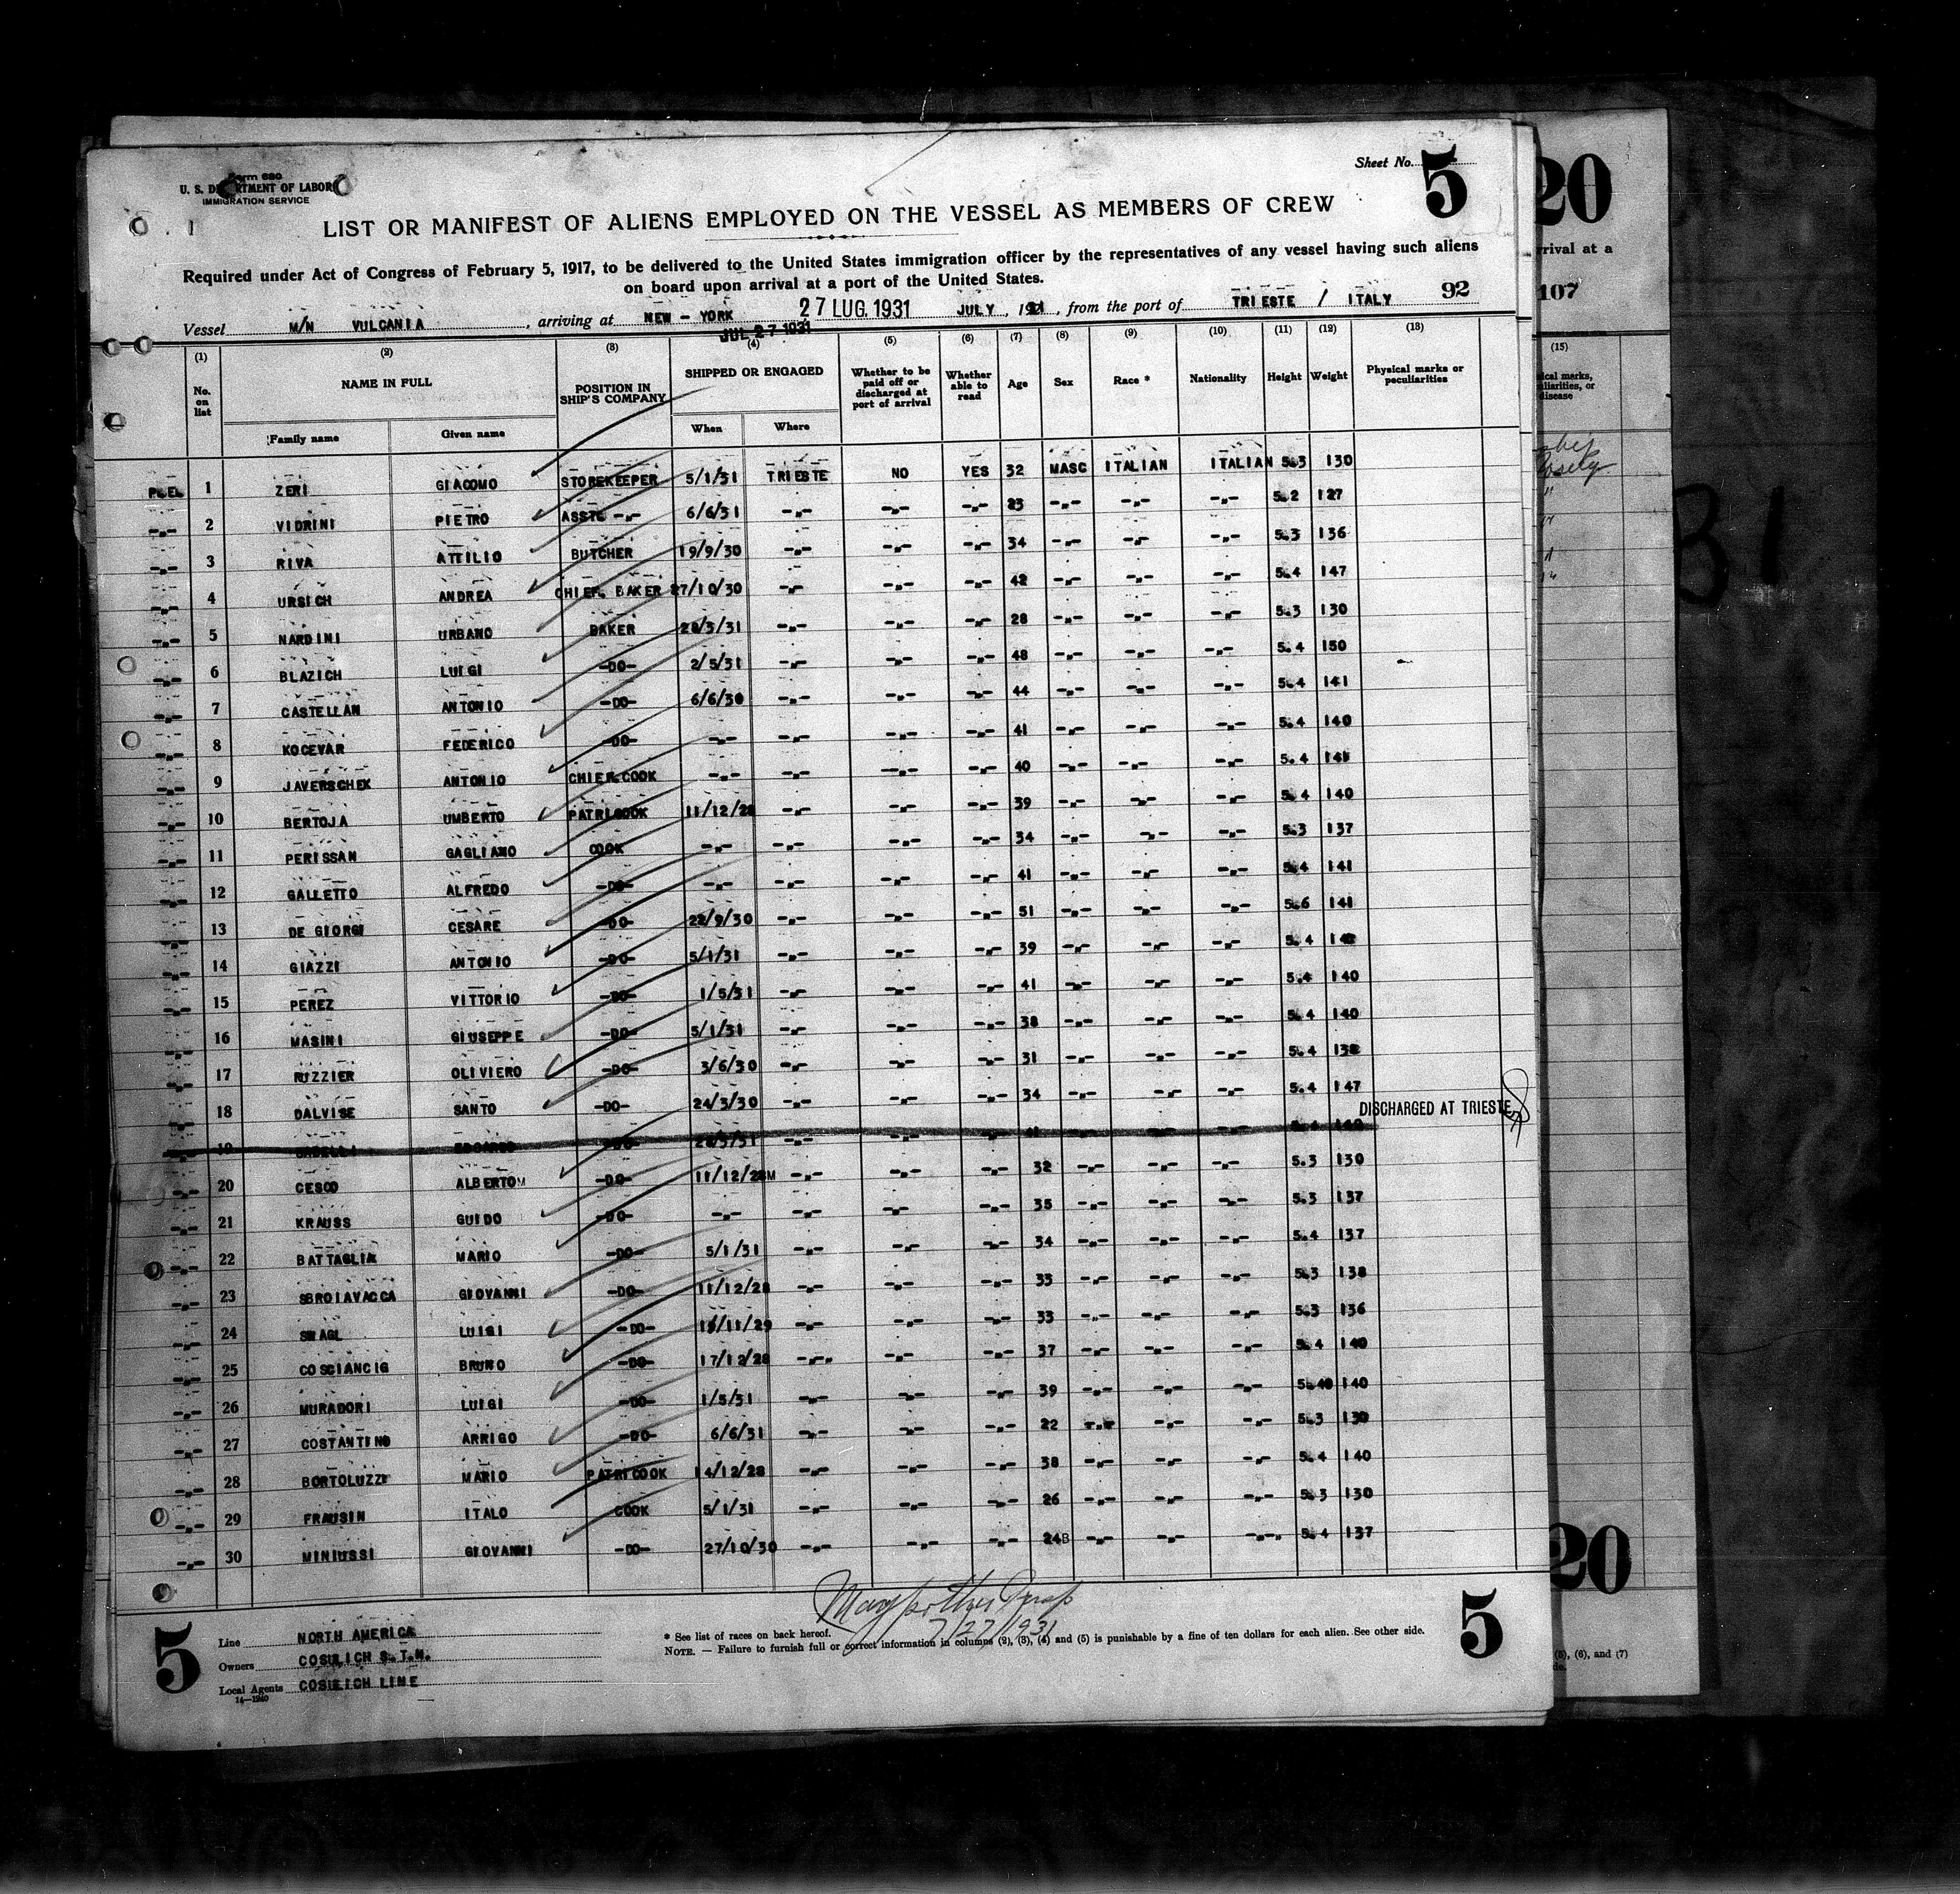 Sheet No. 5
Form 680
U. S. DEPARTMENT OF LABOR
IMMIGRATION SERVICE
LIST OR MANIFEST OF ALIENS EMPLOYED ON THE VESSEL AS MEMBERS OF CREW
Required under Act of Congress of February 5, 1917, to be delivered to the United States immigration officer by the representatives of any vessel having such aliens
on board upon arrival at a port of the United States.
92
Vessel M/N VULCANIA, arriving at NEW - YORK 27 LUG. 1931 JULY, 1931, from the port of TRIESTE / ITALY
JUL 27 1931
(1) (2) (3) (4) (5) (6) (7) (8) (9) (10) (11) (12) (13)
No. on list NAME IN FULL POSITION IN SHIP'S COMPANY SHIPPED OR ENGAGED Whether to be paid off or discharged at port of arrival Whether able to read Age Sex Race * Nationality Height Weight Physical marks or peculiarities
Family name Given name When Where
1 ZERI GIACOMO STOREKEEPER 5/1/31 TRIESTE NO YES 32 MASC ITALIAN ITALIAN 5.3 130
-"- 2 VIDRINI PIETRO ASSTS -"- 6/6/31 -"- -"- -"- 23 -"- -"- -"- 5.2 127
-"- 3 RIVA ATTILIO BUTCHER 19/9/30 -"- -"- -"- 34 -"- -"- -"- 5.3 136
-"- 4 URSICH ANDREA CHIEF. BAKER 27/10/30 -"- -"- -"- 42 -"- -"- -"- 5.4 147
-"- 5 NARDINI URBANO BAKER 28/3/31 -"- -"- -"- 28 -"- -"- -"- 5.3 130
-"- 6 BLAZICH LUIGI -DO- 2/5/31 -"- -"- -"- 48 -"- -"- -"- 5.4 150
-"- 7 CASTELLAN ANTONIO -DO- 6/6/30 -"- -"- -"- 44 -"- -"- -"- 5.4 141
-"- 8 KOCEVAR FEDERICO -DO- -"- -"- -"- -"- 41 -"- -"- -"- 5.4 140
-"- 9 JAVERSCHEK ANTONIO CHIEF.COOK -"- -"- -"- -"- 40 -"- -"- -"- 5.4 141
-"- 10 BERTOJA UMBERTO PATRI.COOK 11/12/28 -"- -"- -"- 39 -"- -"- -"- 5.4 140
-"- 11 PERISSAN GAGLIANO COOK -"- -"- -"- -"- 34 -"- -"- -"- 5.3 137
-"- 12 GALLETTO ALFREDO -DO- -"- -"- -"- -"- 41 -"- -"- -"- 5.4 141
-"- 13 DE GIORGI CESARE -DO- 22/9/30 -"- -"- -"- 51 -"- -"- -"- 5.6 141
-"- 14 GIAZZI ANTONIO -DO- 5/1/31 -"- -"- -"- 39 -"- -"- -"- 5.4
-"- 15 PEREZ VITTORIO -DO- 1/5/31 -"- -"- -"- 41 -"- -"- -"- 5.4 140
-"- 16 MASINI GIUSEPPE -DO- 5/1/31 -"- -"- -"- 38 -"- -"- -"- 5.4 140
-"- 17 RUZZIER OLIVIERO -DO- 3/6/30 -"- -"- -"- 31 -"- -"- -"- 5.4 138
-"- 18 DALVISE SANTO -DO- 24/3/30 -"- -"- -"- 34 -"- -"- -"- 5.4 147
19 EDOARDO -DO- 28/3/31 -"- -"- -"- 41 -"- -"- -"- 5.4 140 DISCHARGED AT TRIESTE
-"- 20 CESCO ALBERTO -DO- 11/12/28 -"- -"- -"- 32 -"- -"- -"- 5.3 130
-"- 21 KRAUSS GUIDO -DO- -"- -"- -"- -"- 35 -"- -"- -"- 5.3 137
-"- 22 BATTAGLIA MARIO -DO- 5/1/31 -"- -"- -"- 34 -"- -"- -"- 5.4 137
-"- 23 SBROIAVACCA GIOVANNI -DO- 11/12/28 -"- -"- -"- 33 -"- -"- -"- 5.3 138
-"- 24 SMAGL LUIGI -DO- -"- -"- -"- 33 -"- -"- -"- 5.3 136
-"- 25 COSCIANCIG BRUNO -DO- 17/12/28 -"- -"- -"- 37 -"- -"- -"- 5.4 140
-"- 26 MURADORI LUIGI -DO- 1/5/31 -"- -"- -"- 39 -"- -"- -"- 140
-"- 27 COSTANTINO ARRIGO -DO- 6/6/31 -"- -"- -"- 22 -"- -"- -"- 5.3 130
-"- 28 BORTOLUZZI MARIO PATRI COOK 14/12/28 -"- -"- -"- 38 -"- -"- -"- 5.4 140
-"- 29 FRAUSIN ITALO COOK 5/1/31 -"- -"- -"- 26 -"- -"- -"- 5.3 130
-"- 30 MINIUSSI GIOVANNI -DO- 27/10/30 -"- -"- -"- 24 -"- -"- -"- 5.4 137
7/27/1931
5
Line NORTH AMERICA
Owners COSULICH S.T.N.
Local Agents COSULICH LINE
14-1240
* See list of races on back hereof.
NOTE. — Failure to furnish full or correct information in columns (2), (3), (4) and (5) is punishable by a fine of ten dollars for each alien. See other side.
5
20
rrival at a
107
(15)
ical marks,
uliarities, or
disease
31
20
(5), (6), and (7)
de.